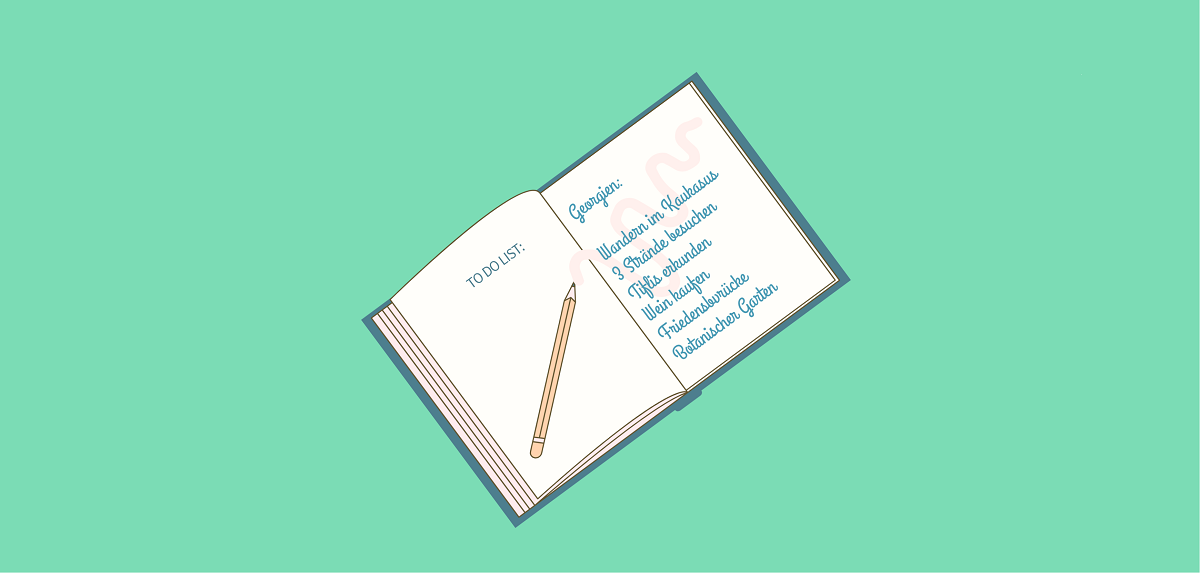 TO DO LIST:
Georgien:
Wandern im Kaukasus
3 Strände besuchen
Tiflis erkunden
Wein kaufen
Friedensbrücke
Botanischer Garten